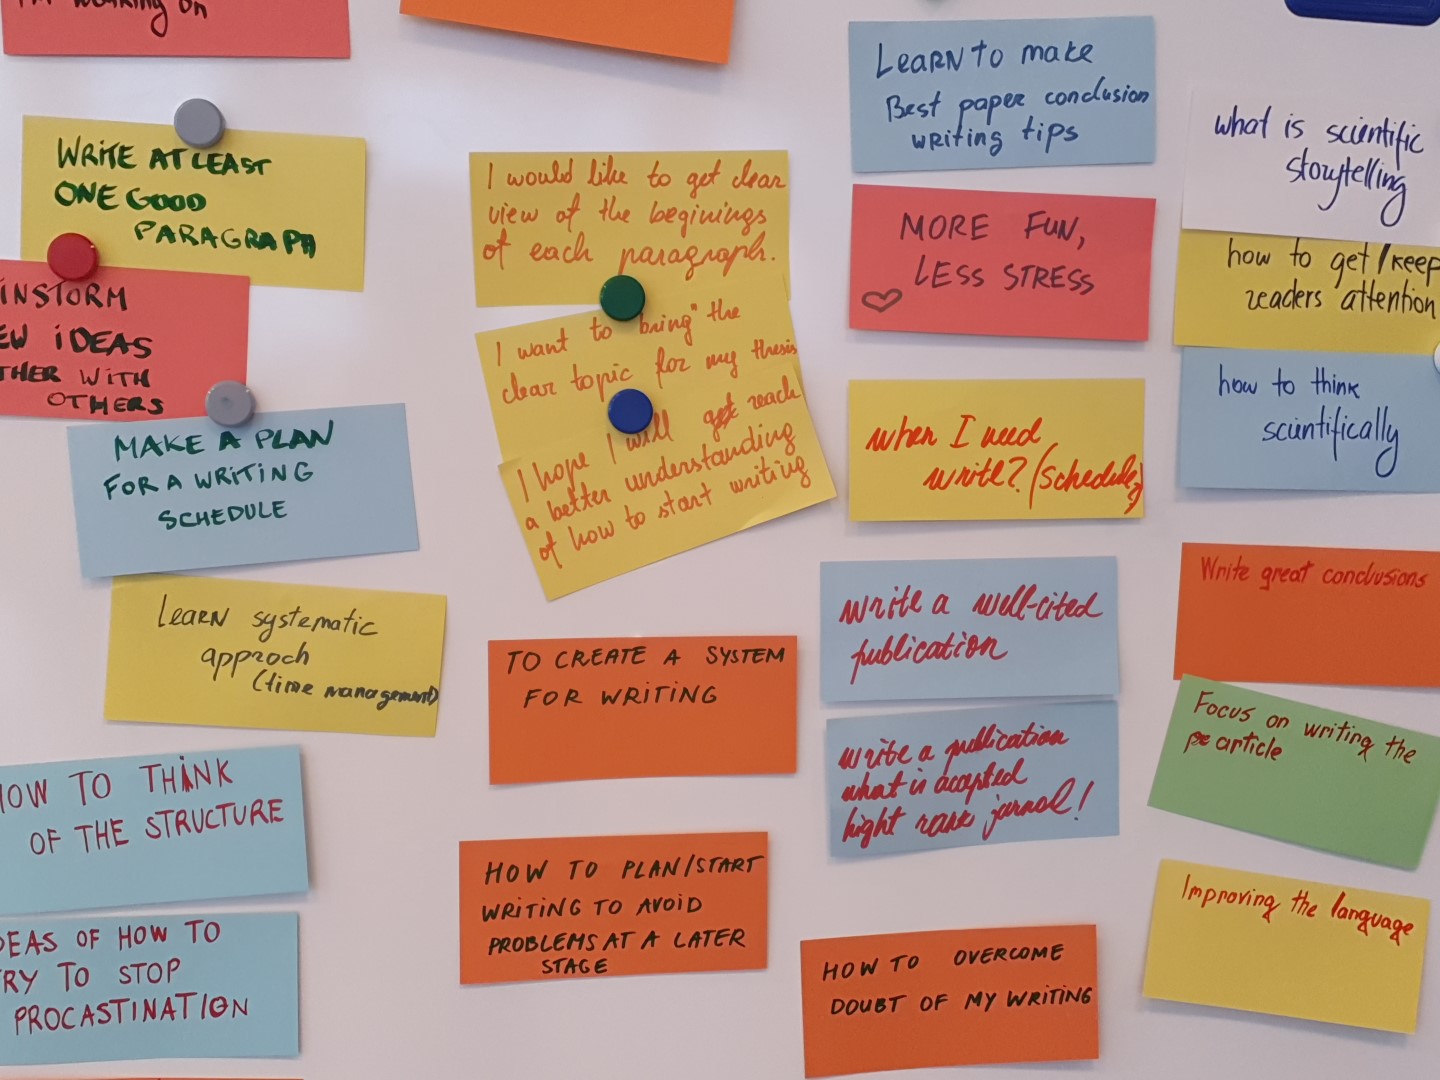 I'm working on
WRITE AT LEAST
ONE GOOD
PARAGRAPH
INSTORM
EW IDEAS
THER WITH
OTHERS
MAKE A PLAN
FOR A WRITING
SCHEDULE
LEARN systematic
approch
(time management)
HOW TO THINK
OF THE STRUCTURE
DEAS OF HOW TO
TRY TO STOP
PROCASTINATION
I would like to get clear
view of the beginings
of each paragraph.
I want to "bring" the
clear topic for my thesis
I hope I will get reach
a better understanding
of how to start writing
TO CREATE A SYSTEM
FOR WRITING
HOW TO PLAN/START
WRITING TO AVOID
PROBLEMS AT A LATER
STAGE
LEARN TO make
Best paper conclusion
writing tips
MORE FUN,
LESS STRESS
when I need
write? (schedule)
write a well-cited
publication
write a publication
what is accepted
hight rank jurnal!
HOW TO OVERCOME
DOUBT OF MY WRITING
what is scientific
storytelling
how to get/keep
readers attention
how to think
scientifically
Write great conclusions
Focus on writing the
article
Improving the language